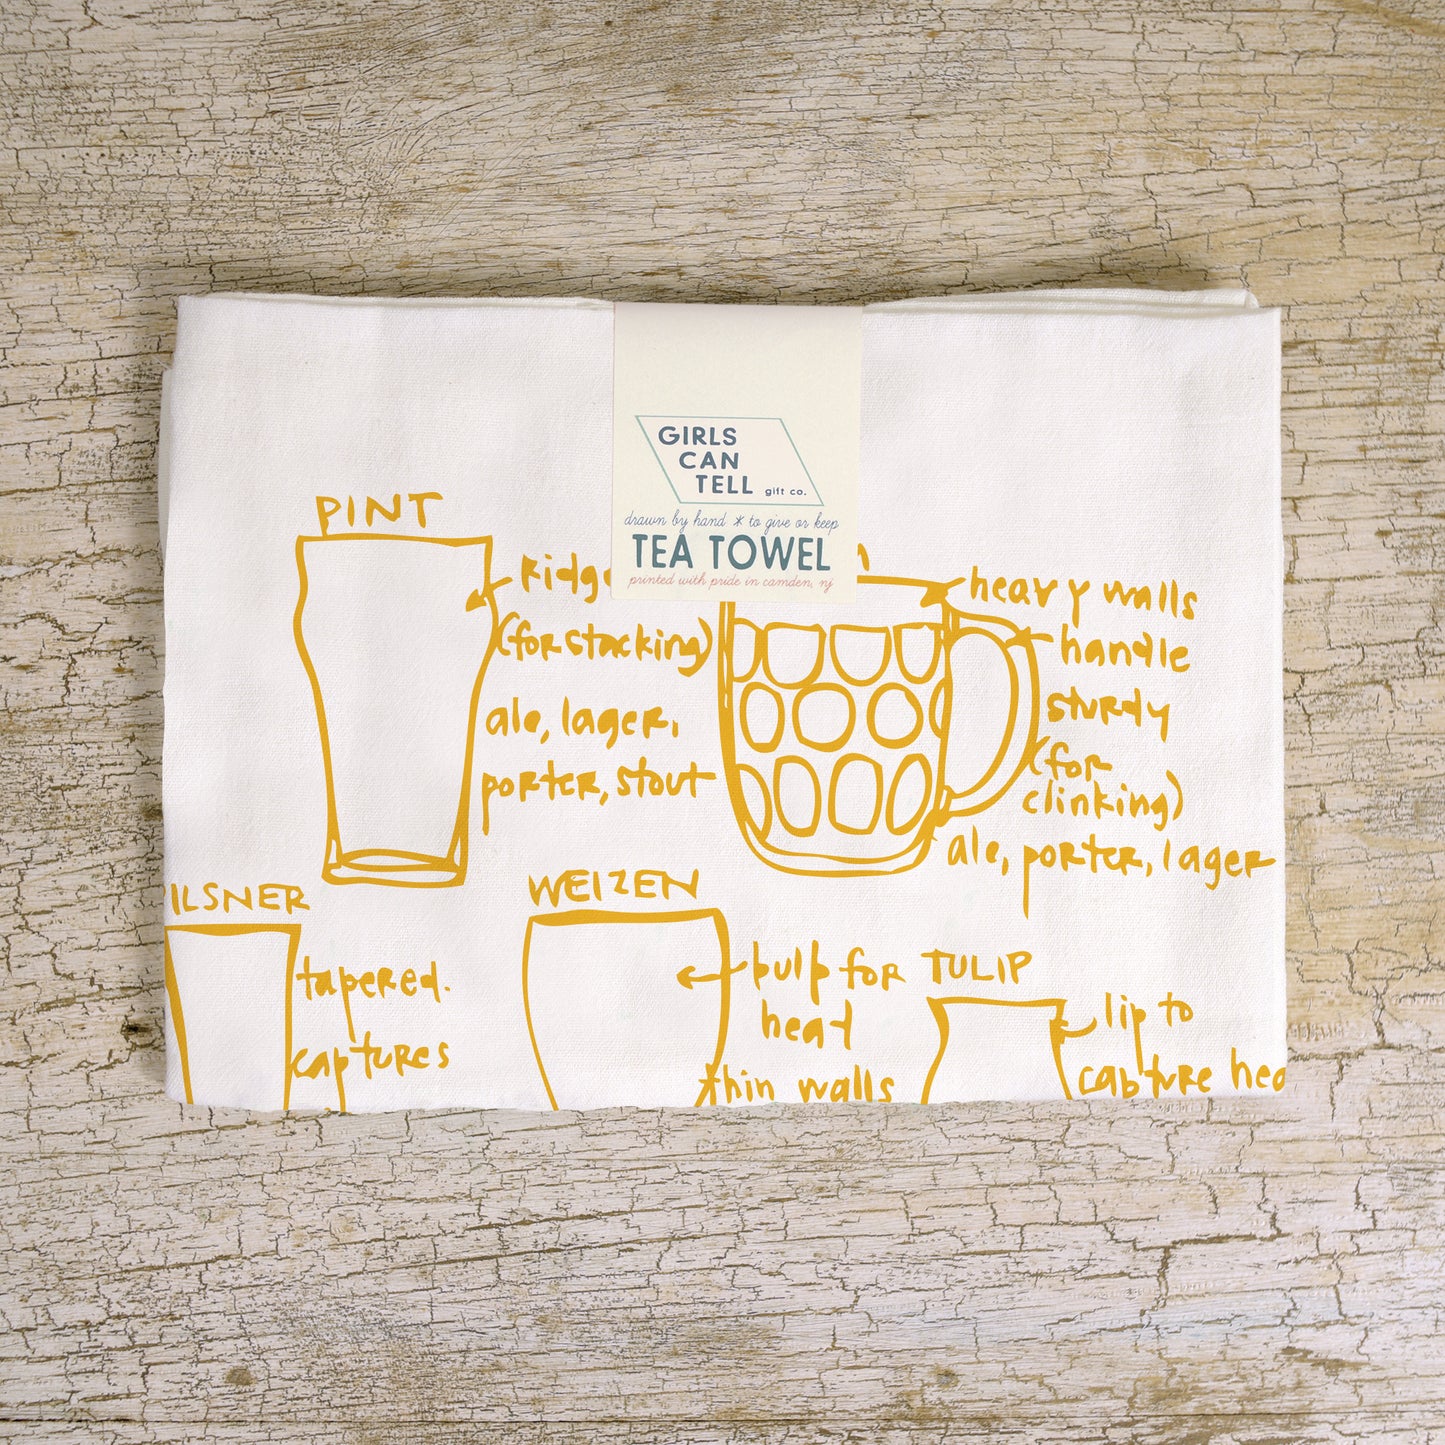 GIRLS
CAN
TELL gift co.
drawn by hand * to give or keep
TEA TOWEL
printed with pride in camden, nj
PINT
Ridge
(for stacking)
ale, lager,
porter, stout
heavy walls
handle
sturdy
(for
clinking)
ale, porter, lager
ILSNER
tapered.
captures
WEIZEN
bulb for
head
thin walls
TULIP
lip to
capture hea